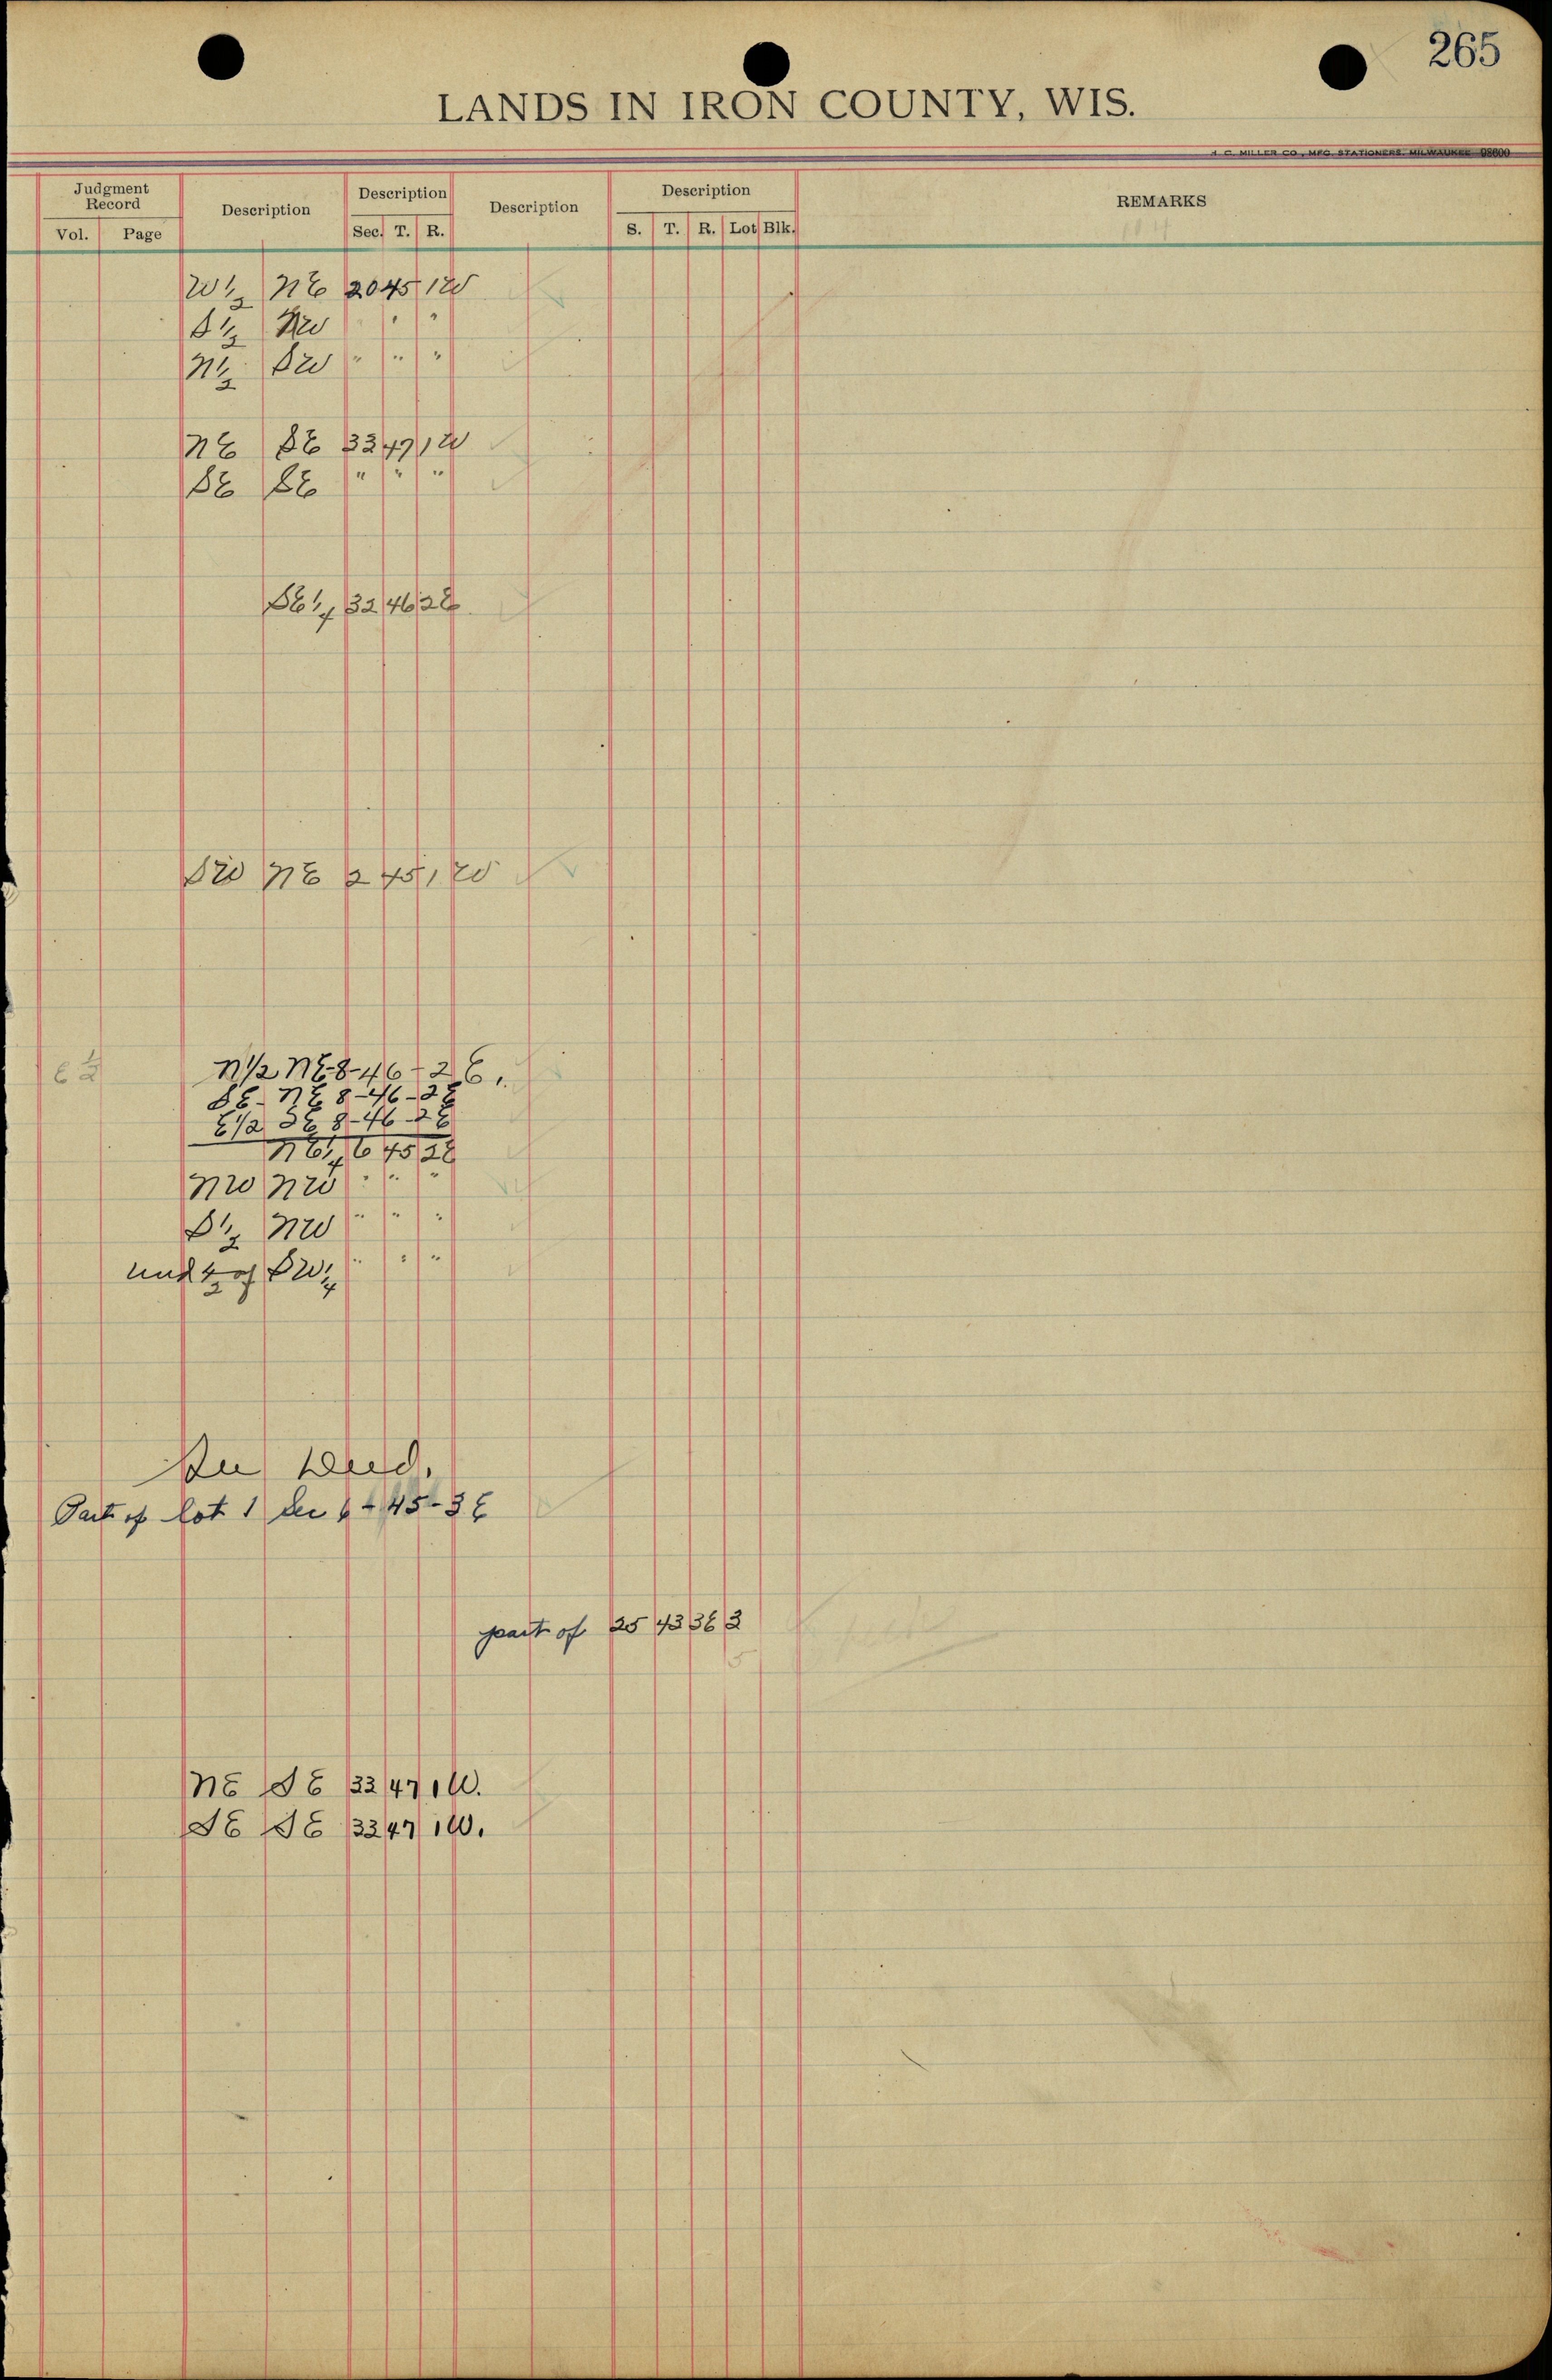 265
LANDS IN IRON COUNTY, WIS.
H. C. MILLER CO., MFG. STATIONERS. MILWAUKEE 98600
Judgment Record Description Description Description Description REMARKS
Vol. Page Sec. T. R. S. T. R. Lot Blk.
W 1/2 NE 20 45 1W
S 1/2 NW " "
N 1/2 SW " " "
NE SE 33 47 1W
SE SE " " "
SE 1/4 32 46 2E
SW NE 2 45 1W
E 1/2 N 1/2 NE-8-46-2E.
SE-NE 8-46-2E
E 1/2 SE 8-46-2E
NE 1/4 6 45 2E
NW NW " " "
S 1/2 NW " " "
und 1/2 of SW 1/4 " " "
See Deed.
Part of lot 1 Sec 6-45-3E
part of 25 43 3E 3
5
NE SE 33 47 1W.
SE SE 33 47 1W.